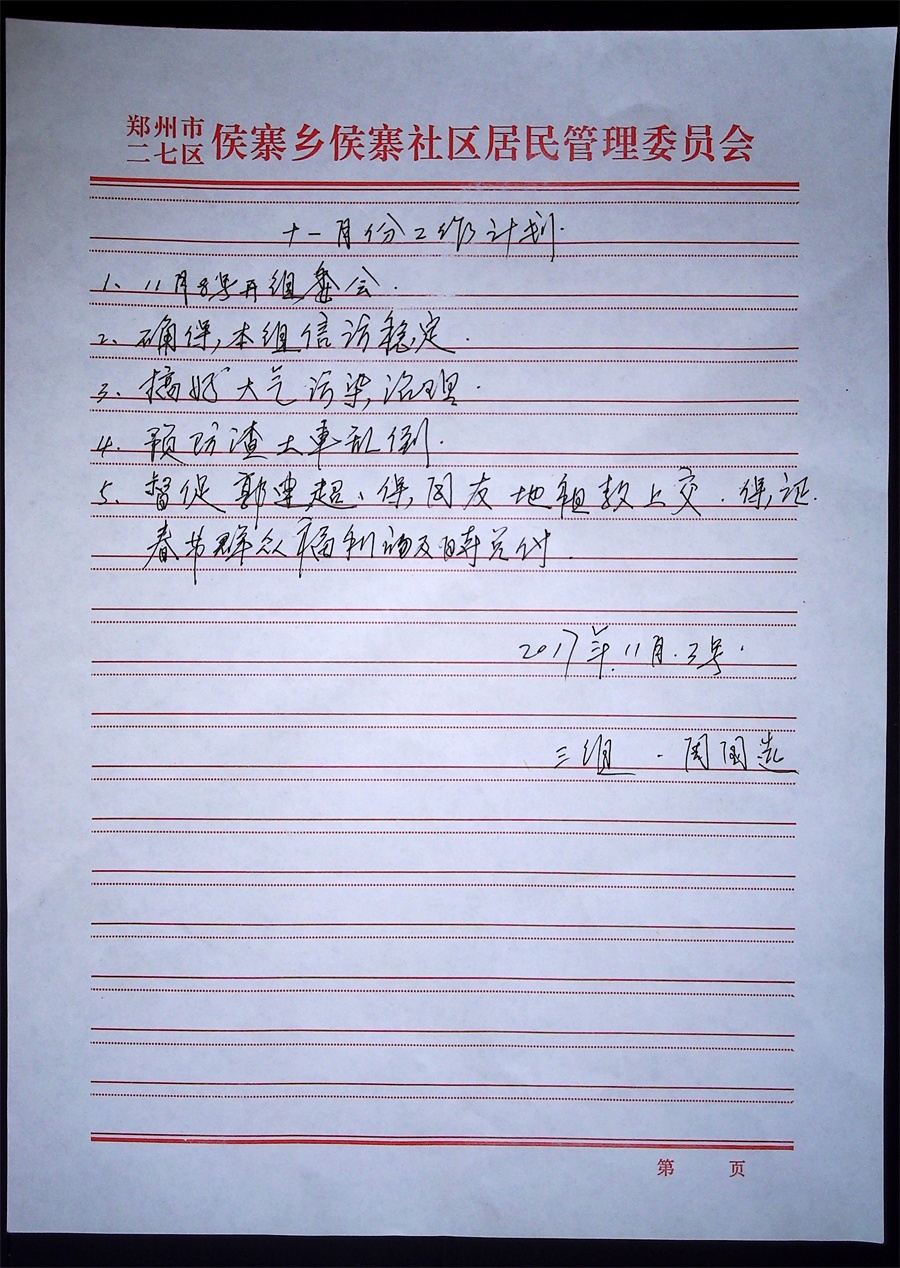 郑州市
二七区 侯寨乡侯寨社区居民管理委员会
十一月份工作计划.
1、11月8号开组委会.
2、确保本组信访稳定.
3、搞好大气污染治理.
4.预防渣土车乱倒.
5、督促郭建超、保国友地租款上交.保证.
春节群众福利的及时兑付.
2017年.11月.3号.
三组.周国选
第 页